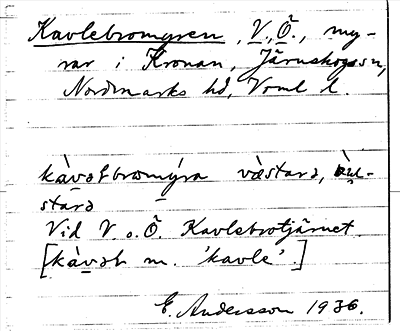 Kavlebromyren, V., Ö., my-
rar i Kronan, Järnskogs sn,
Nordmarks hd, Vrml l.
kàvəlbromýra vàstarə, 
starə
Vid V. o. Ö. Kavlebrotjärnet.
[kàvəl m. 'kavle'.]
E. Andersson 1936.